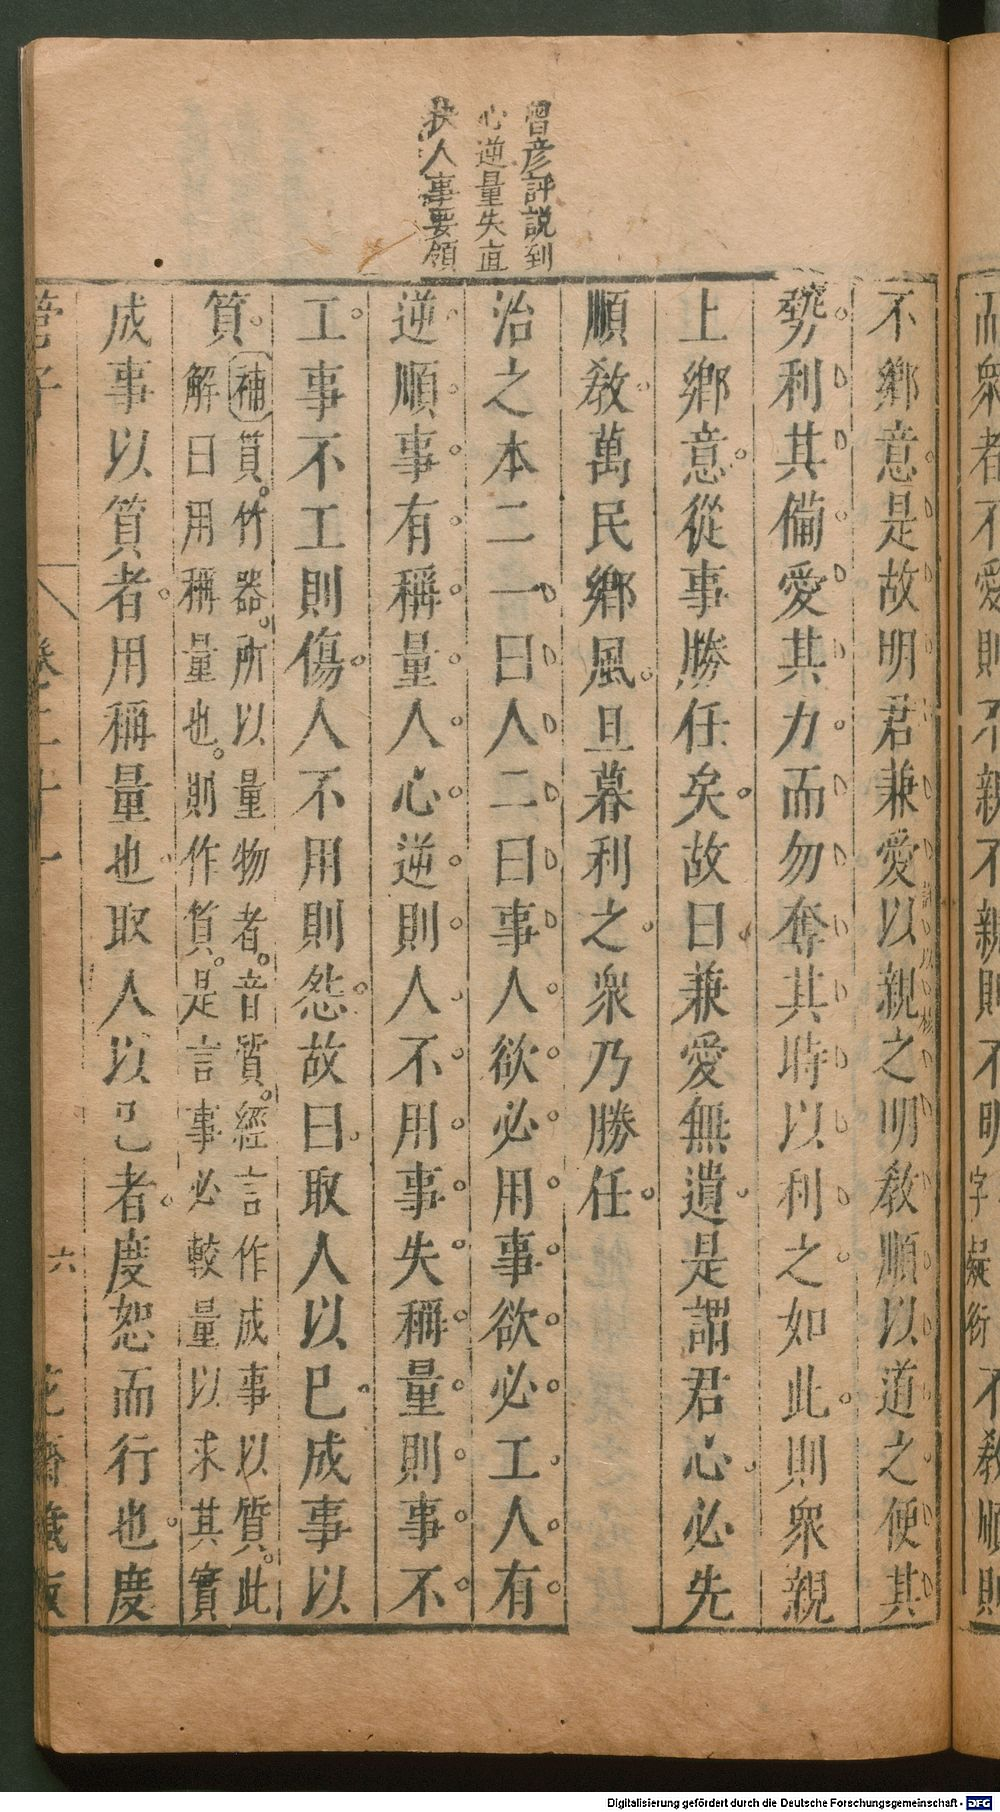 而衆者不愛則不親不親則不明字疑衍不敎順則
曾彦評説到
心逆量失直
抉人事要領
不鄉意是故明君兼愛以親之明敎順以道之便其
勢利其備愛其力而勿奪其時以利之如此則衆親
上鄉意從事勝任矣故曰兼愛無遺是謂君心必先
順敎萬民鄉風旦暮利之衆乃勝任
治之本二一曰人二曰事人欲必用事欲必工人有
逆順事有稱量人心逆則人不用事失稱量則事不
工事不工則傷人不用則怨故曰取人以己成事以
質補質竹器所以量物者音質經言作成事以質此
解曰用稱量也則作質是言事必較量以求其實
成事以質者用稱量也取人以己者度恕而行也度
管子 卷二十一 六 花齋藏板
Digitalisierung gefördert durch die Deutsche Forschungsgemeinschaft - DFG